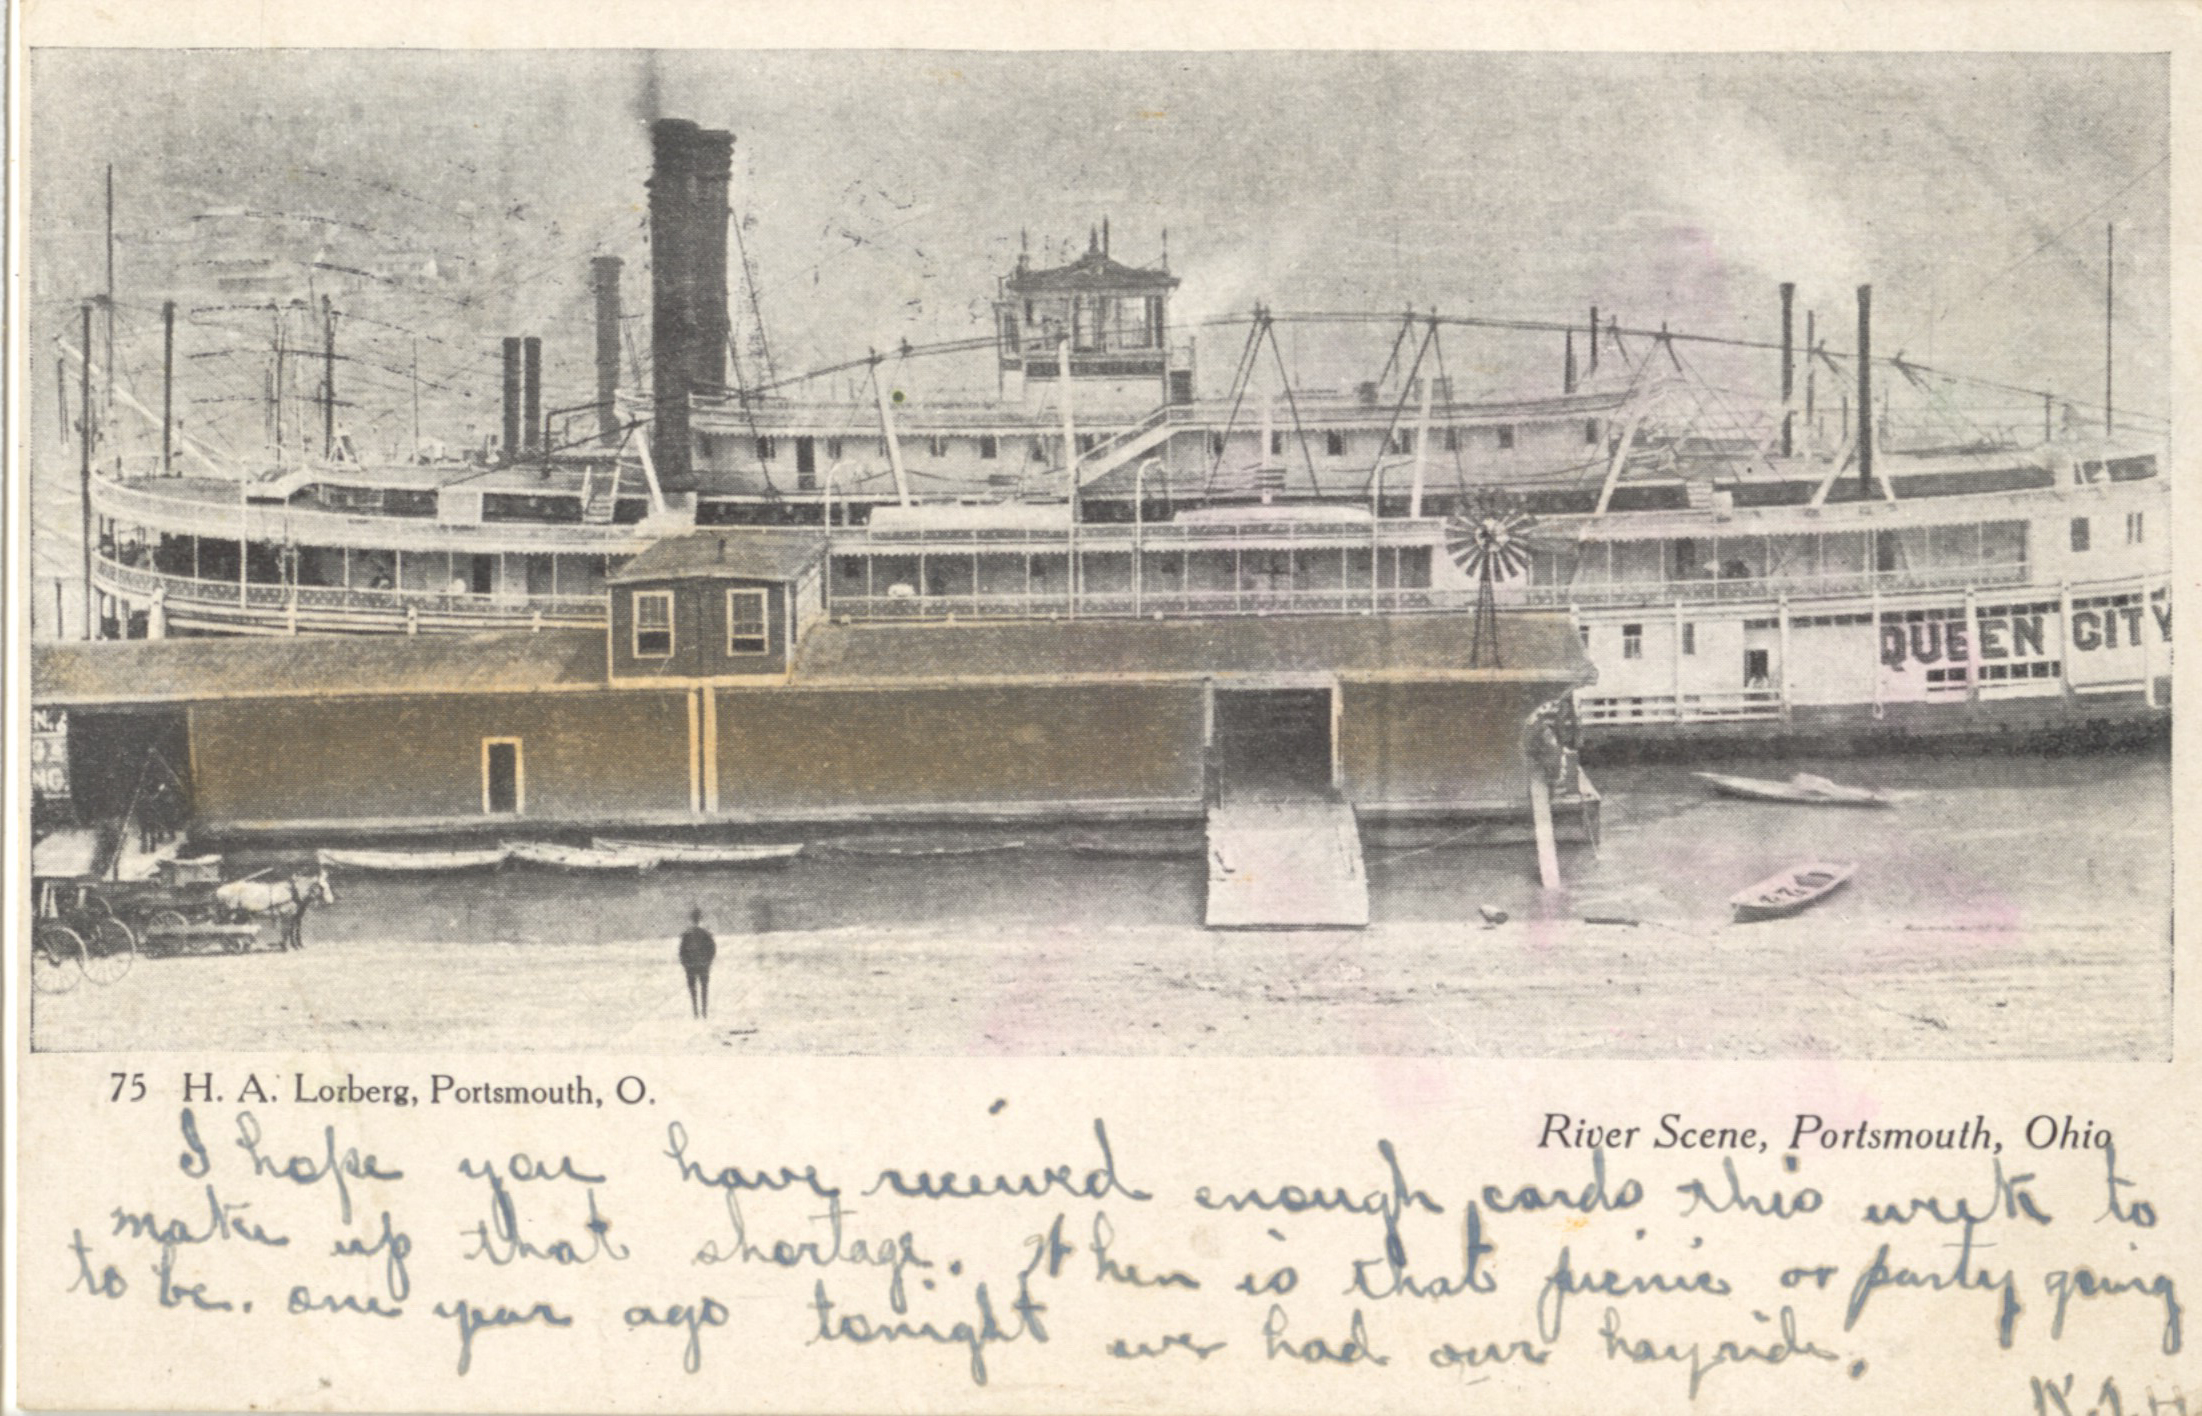 QUEEN CITY
N.
NG.
75 H. A. Lorberg, Portsmouth, O.
River Scene, Portsmouth, Ohio
I hope you have received enough cards this week to
make up that shortage. When is that picnic or party going
to be. one year ago tonight we had our hayride.